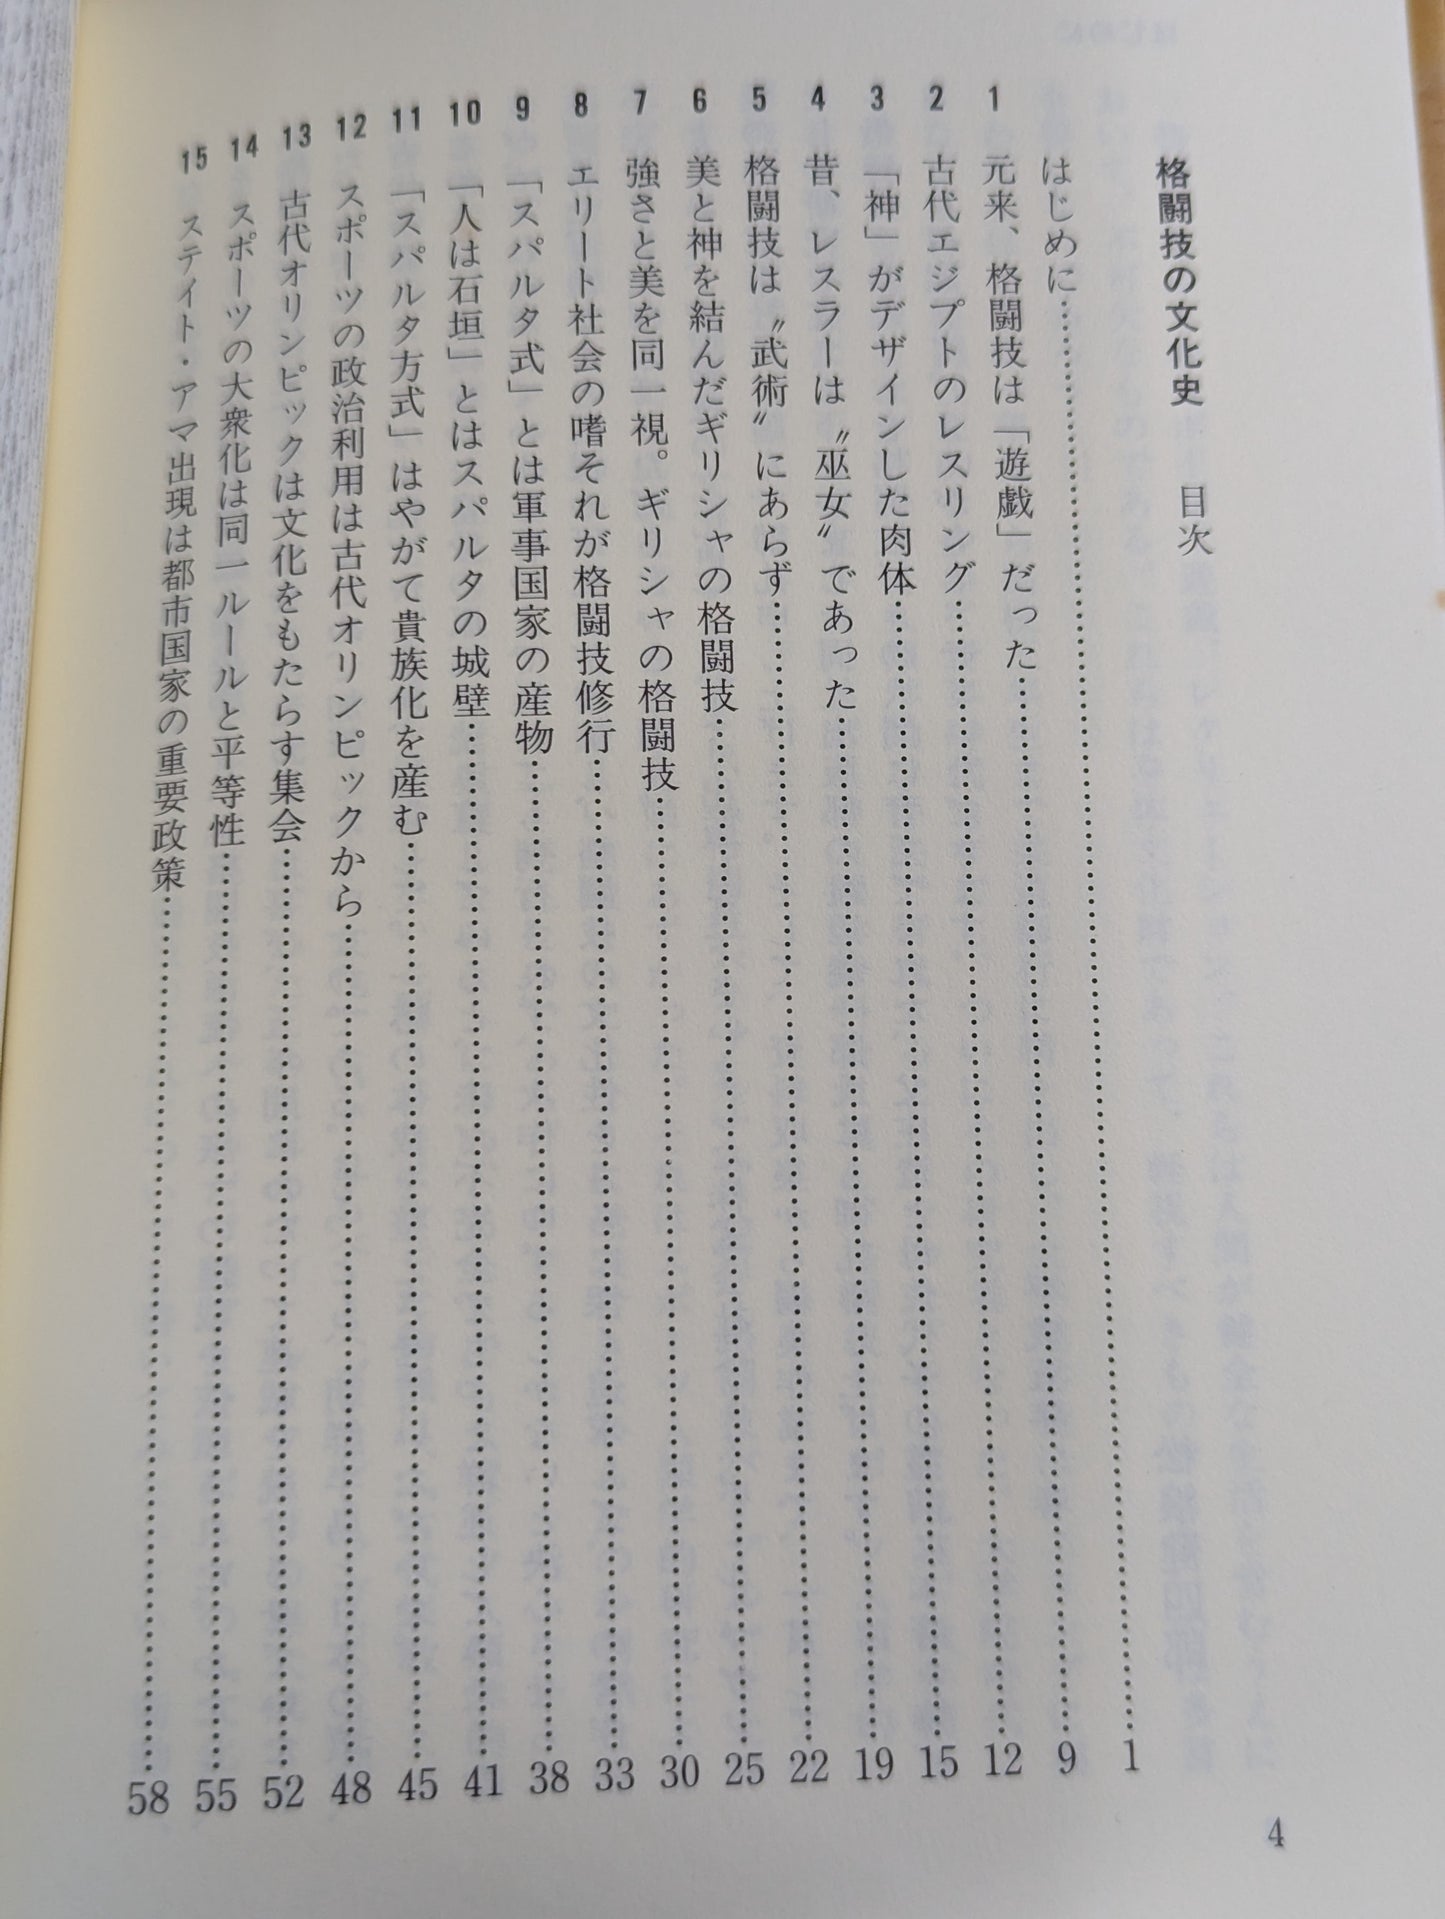 格闘技の文化史　目次
はじめに……………………1
1　元来、格闘技は「遊戯」だった……………………9
2　古代エジプトのレスリング……………………12
3　「神」がデザインした肉体……………………15
4　昔、レスラーは〝巫女〟であった……………………19
5　格闘技は〝武術〟にあらず……………………22
6　美と神を結んだギリシャの格闘技……………………25
7　強さと美を同一視。ギリシャの格闘技……………………30
8　エリート社会の嗜それが格闘技修行……………………33
9　「スパルタ式」とは軍事国家の産物……………………38
10　「人は石垣」とはスパルタの城壁……………………41
11　「スパルタ方式」はやがて貴族化を産む……………………45
12　スポーツの政治利用は古代オリンピックから……………………48
13　古代オリンピックは文化をもたらす集会……………………52
14　スポーツの大衆化は同一ルールと平等性……………………55
15　ステイト・アマ出現は都市国家の重要政策……………………58
4